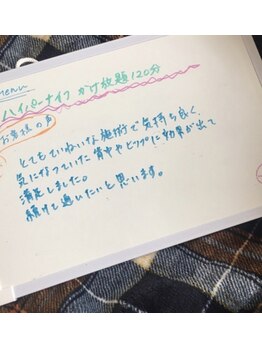 menu
ハイパーナイフ かけ放題120分
お客様の声
とてもていねいな施術で気持ち良く、
気になっていた背中やヒップに効果が出て
満足しました。
続けて通いたいと思います。